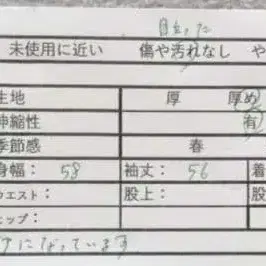 目立った
未使用に近い 傷や汚れなし や
生地 厚 厚め
伸縮性 有
季節感 春
身幅: 58 袖丈: 56 着
ウエスト: 股上:
ヒップ:
になっています